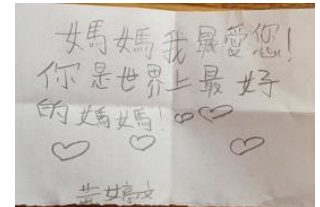 媽媽我最愛您!
你是世界上最好
的媽媽!
黃